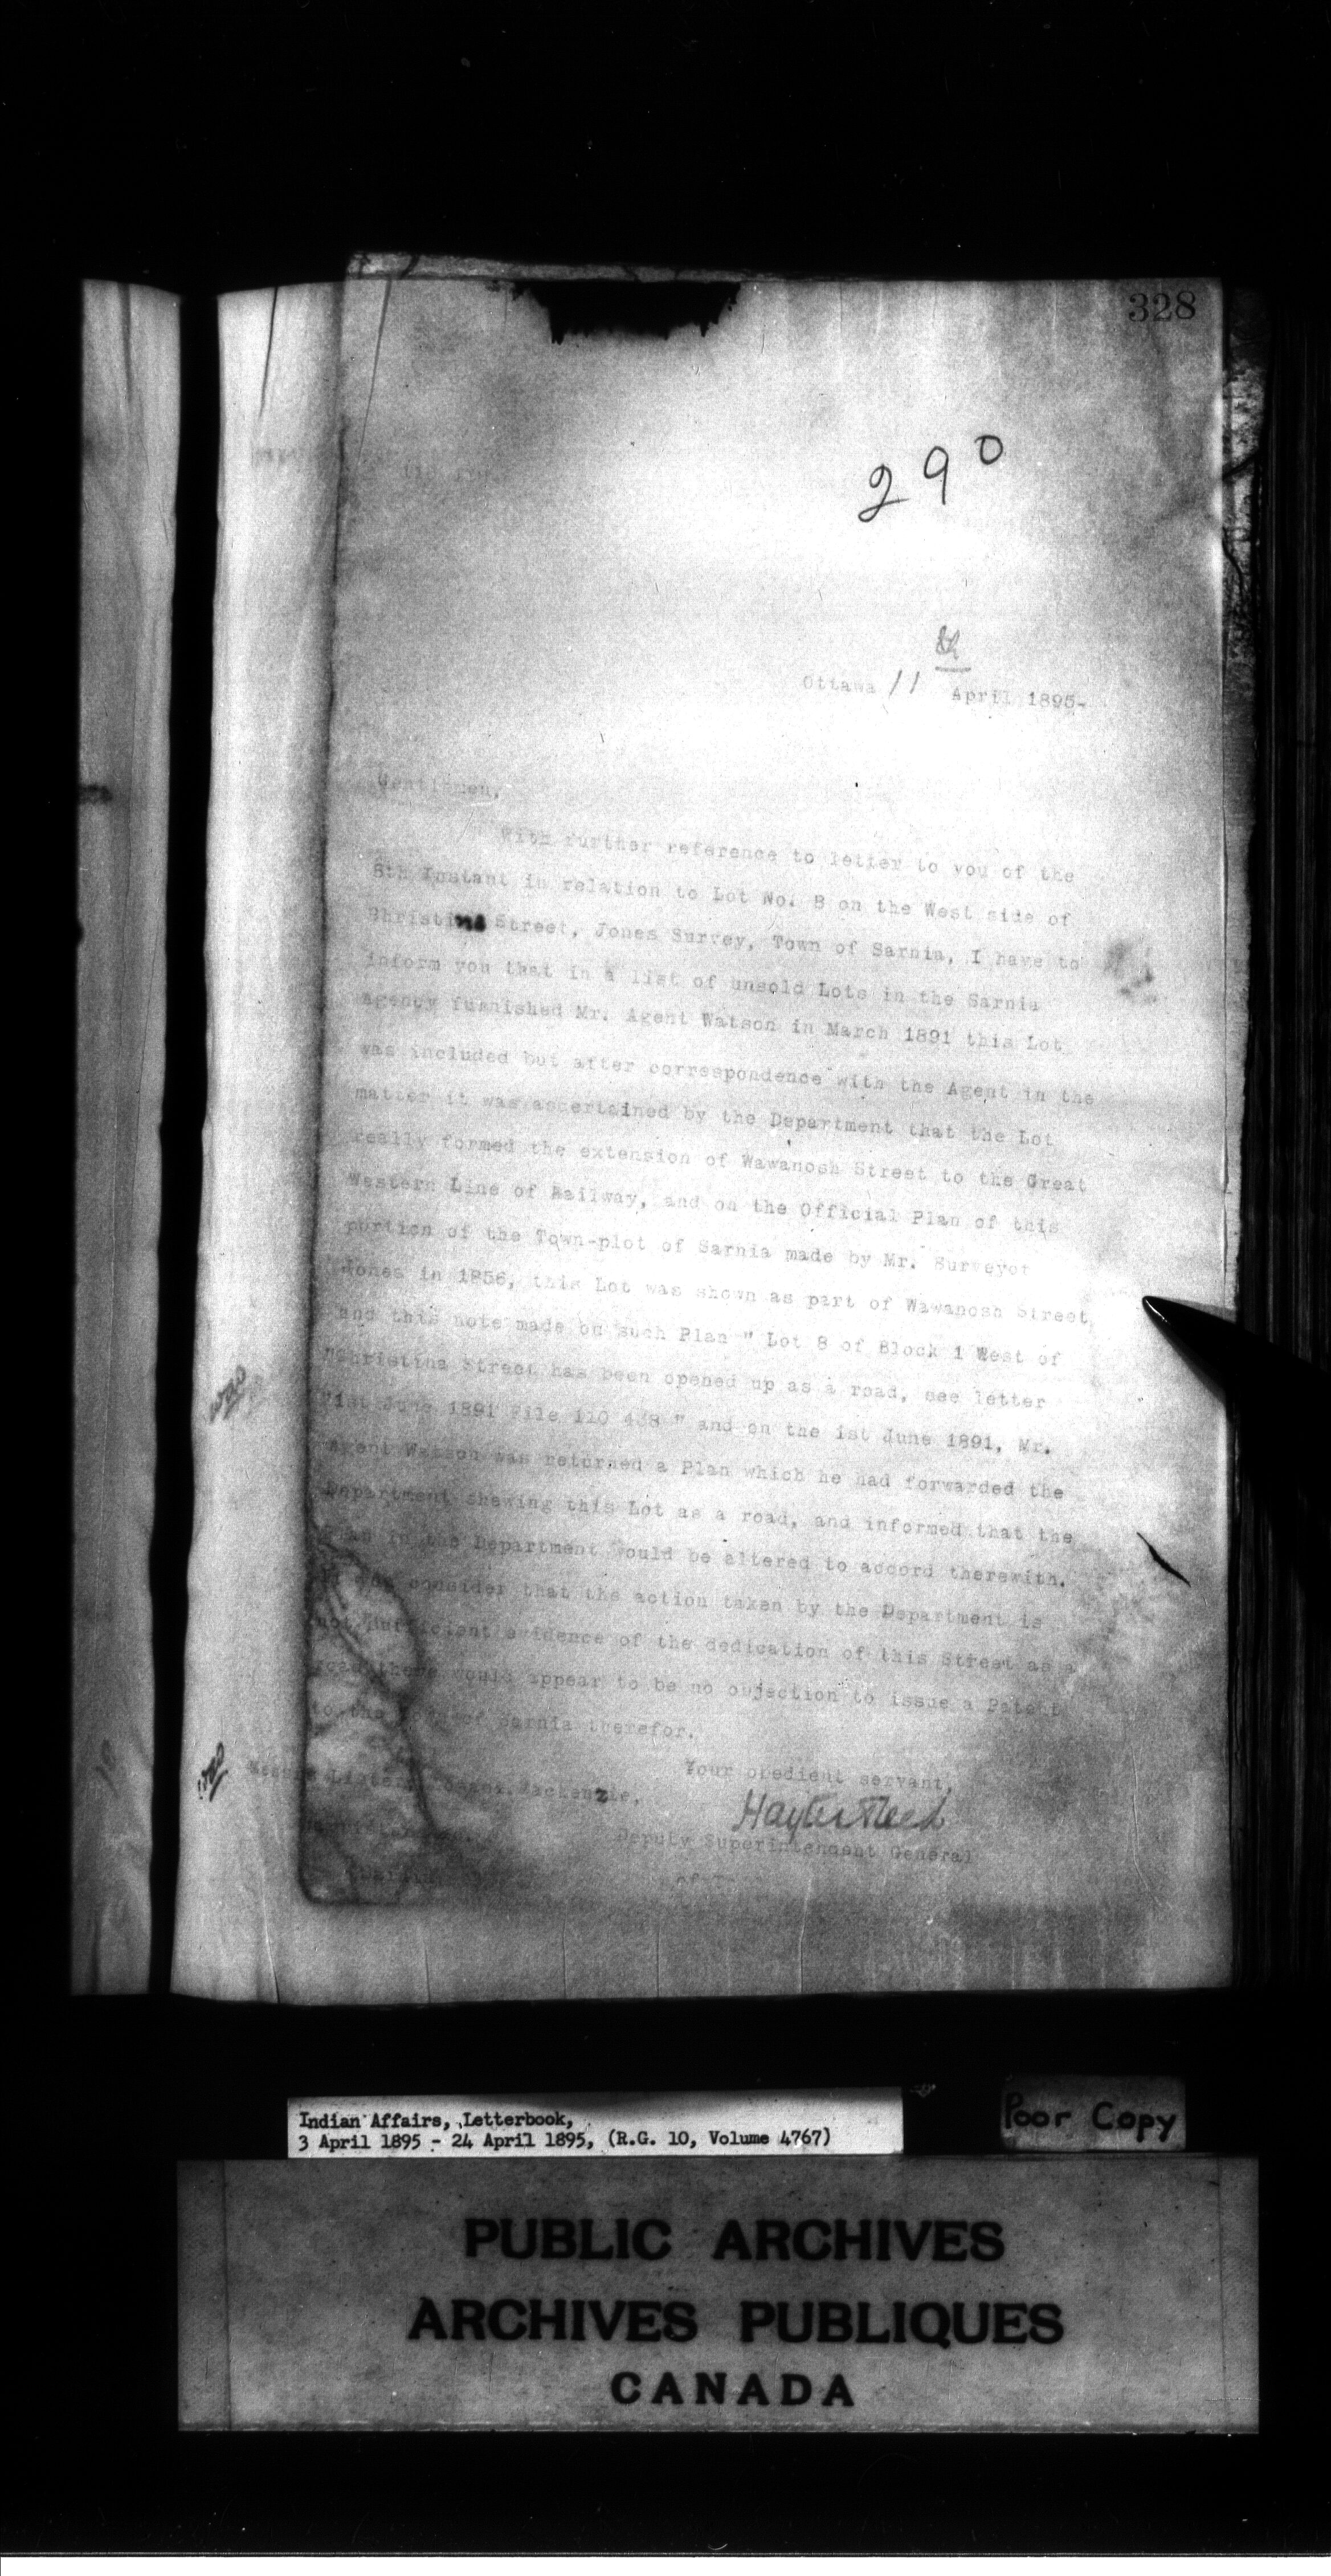 328
290
Ottawa 11th April 1895-
Gentlemen,
With further reference to letter to you of the
8th Instant in relation to Lot No. 8 on the West side of
Christina Street, Jones Survey, Town of Sarnia, I have to
inform you that in a list of unsold Lots in the Sarnia
Agency furnished Mr. Agent Watson in March 1891 this Lot
was included but after correspondence with the Agent in the
matter it was ascertained by the Department that the Lot
really formed the extension of Wawanosh Street to the Great
Western Line of Railway, and on the Official Plan of this
portion of the Town-plot of Sarnia made by Mr. Surveyor
Jones in 1856, this Lot was shown as part of Wawanosh Street,
and this note made on such Plan " Lot 8 of Block 1 West of
"Christina Street has been opened up as a road, see letter
"1st June 1891 File 110 438 " and on the 1st June 1891, Mr.
Agent Watson was returned a Plan which he had forwarded the
Department shewing this Lot as a road, and informed that the
Plan in the Department would be altered to accord therewith.
If you consider that the action taken by the Department is
not sufficient evidence of the dedication of this Street as a
road there would appear to be no objection to issue a Patent
to the Town of Sarnia therefor.
Your obedient servant,
Messrs Mackenzie,
Hayter Reed
Deputy Superintendent General
Indian Affairs, Letterbook,
3 April 1895 - 24 April 1895, (R.G. 10, Volume 4767)
Poor Copy
PUBLIC ARCHIVES
ARCHIVES PUBLIQUES
CANADA